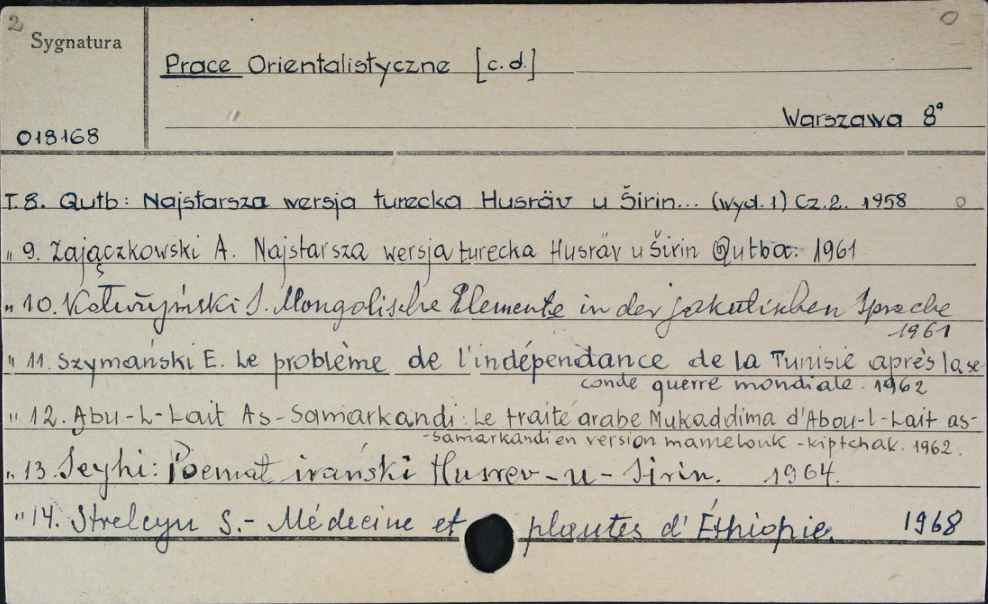 2
0
Sygnatura
Prace Orientalistyczne [c.d.]
Warszawa 8°
018168
T. 8. Qutb: Najstarsza wersja turecka Husräv u Širin... (wyd. 1) Cz. 2. 1958 o
" 9. Zajączkowski A. Najstarsza wersja turecka Husräv u Širin Qutba. 1961
" 10. Kałużyński S. Mongolische Elemente in der jakutischen Sprache
1961
" 11. Szymański E. Le problème de l'indépendance de la Tunisie après la se-
conde guerre mondiale. 1962
" 12. Abu-L-Lait As-Samarkandi: Le traité arabe Mukaddima d'Abou-l-Lait as-
-Samarkandi en version mamelouk-kiptchak. 1962.
" 13. Seyhi: Poemat irański Husrev-u-Sirin. 1964.
" 14. Strelcyn S.- Médecine et plantes d'Éthiopie. 1968